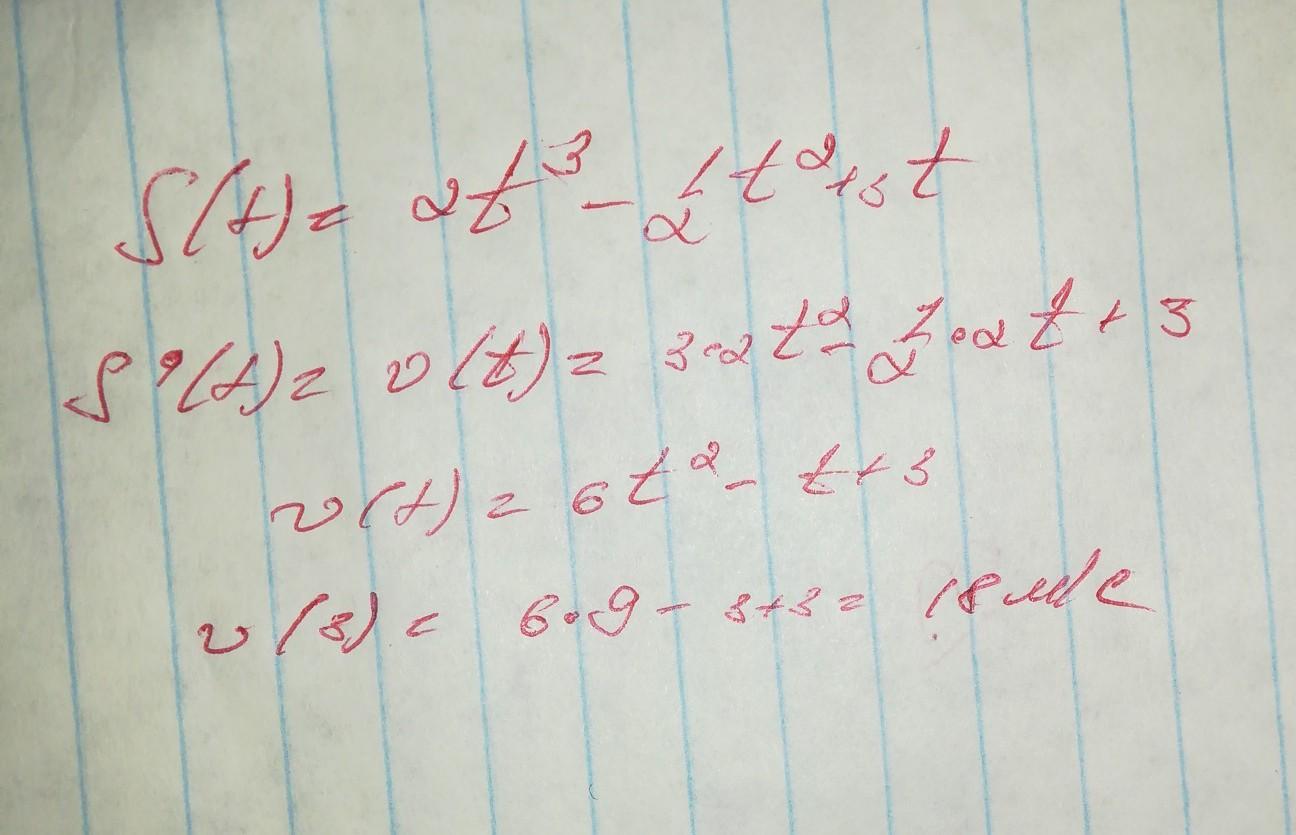 S(t) = 2t³ - 1/2 t² + 3t
S'(t) = v(t) = 3·2t² - 1/2·2t + 3
v(t) = 6t² - t + 3
v(3) = 6·9 - 3 + 3 = 18 м/с